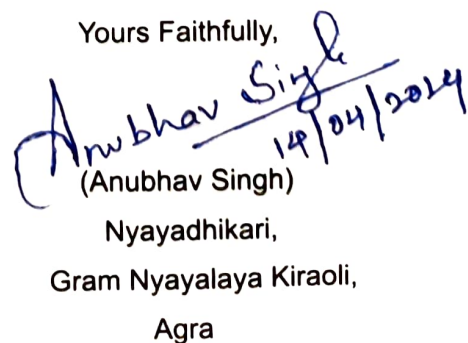 Yours Faithfully,
Anubhav Singh
14/04/2024
(Anubhav Singh)
Nyayadhikari,
Gram Nyayalaya Kiraoli,
Agra